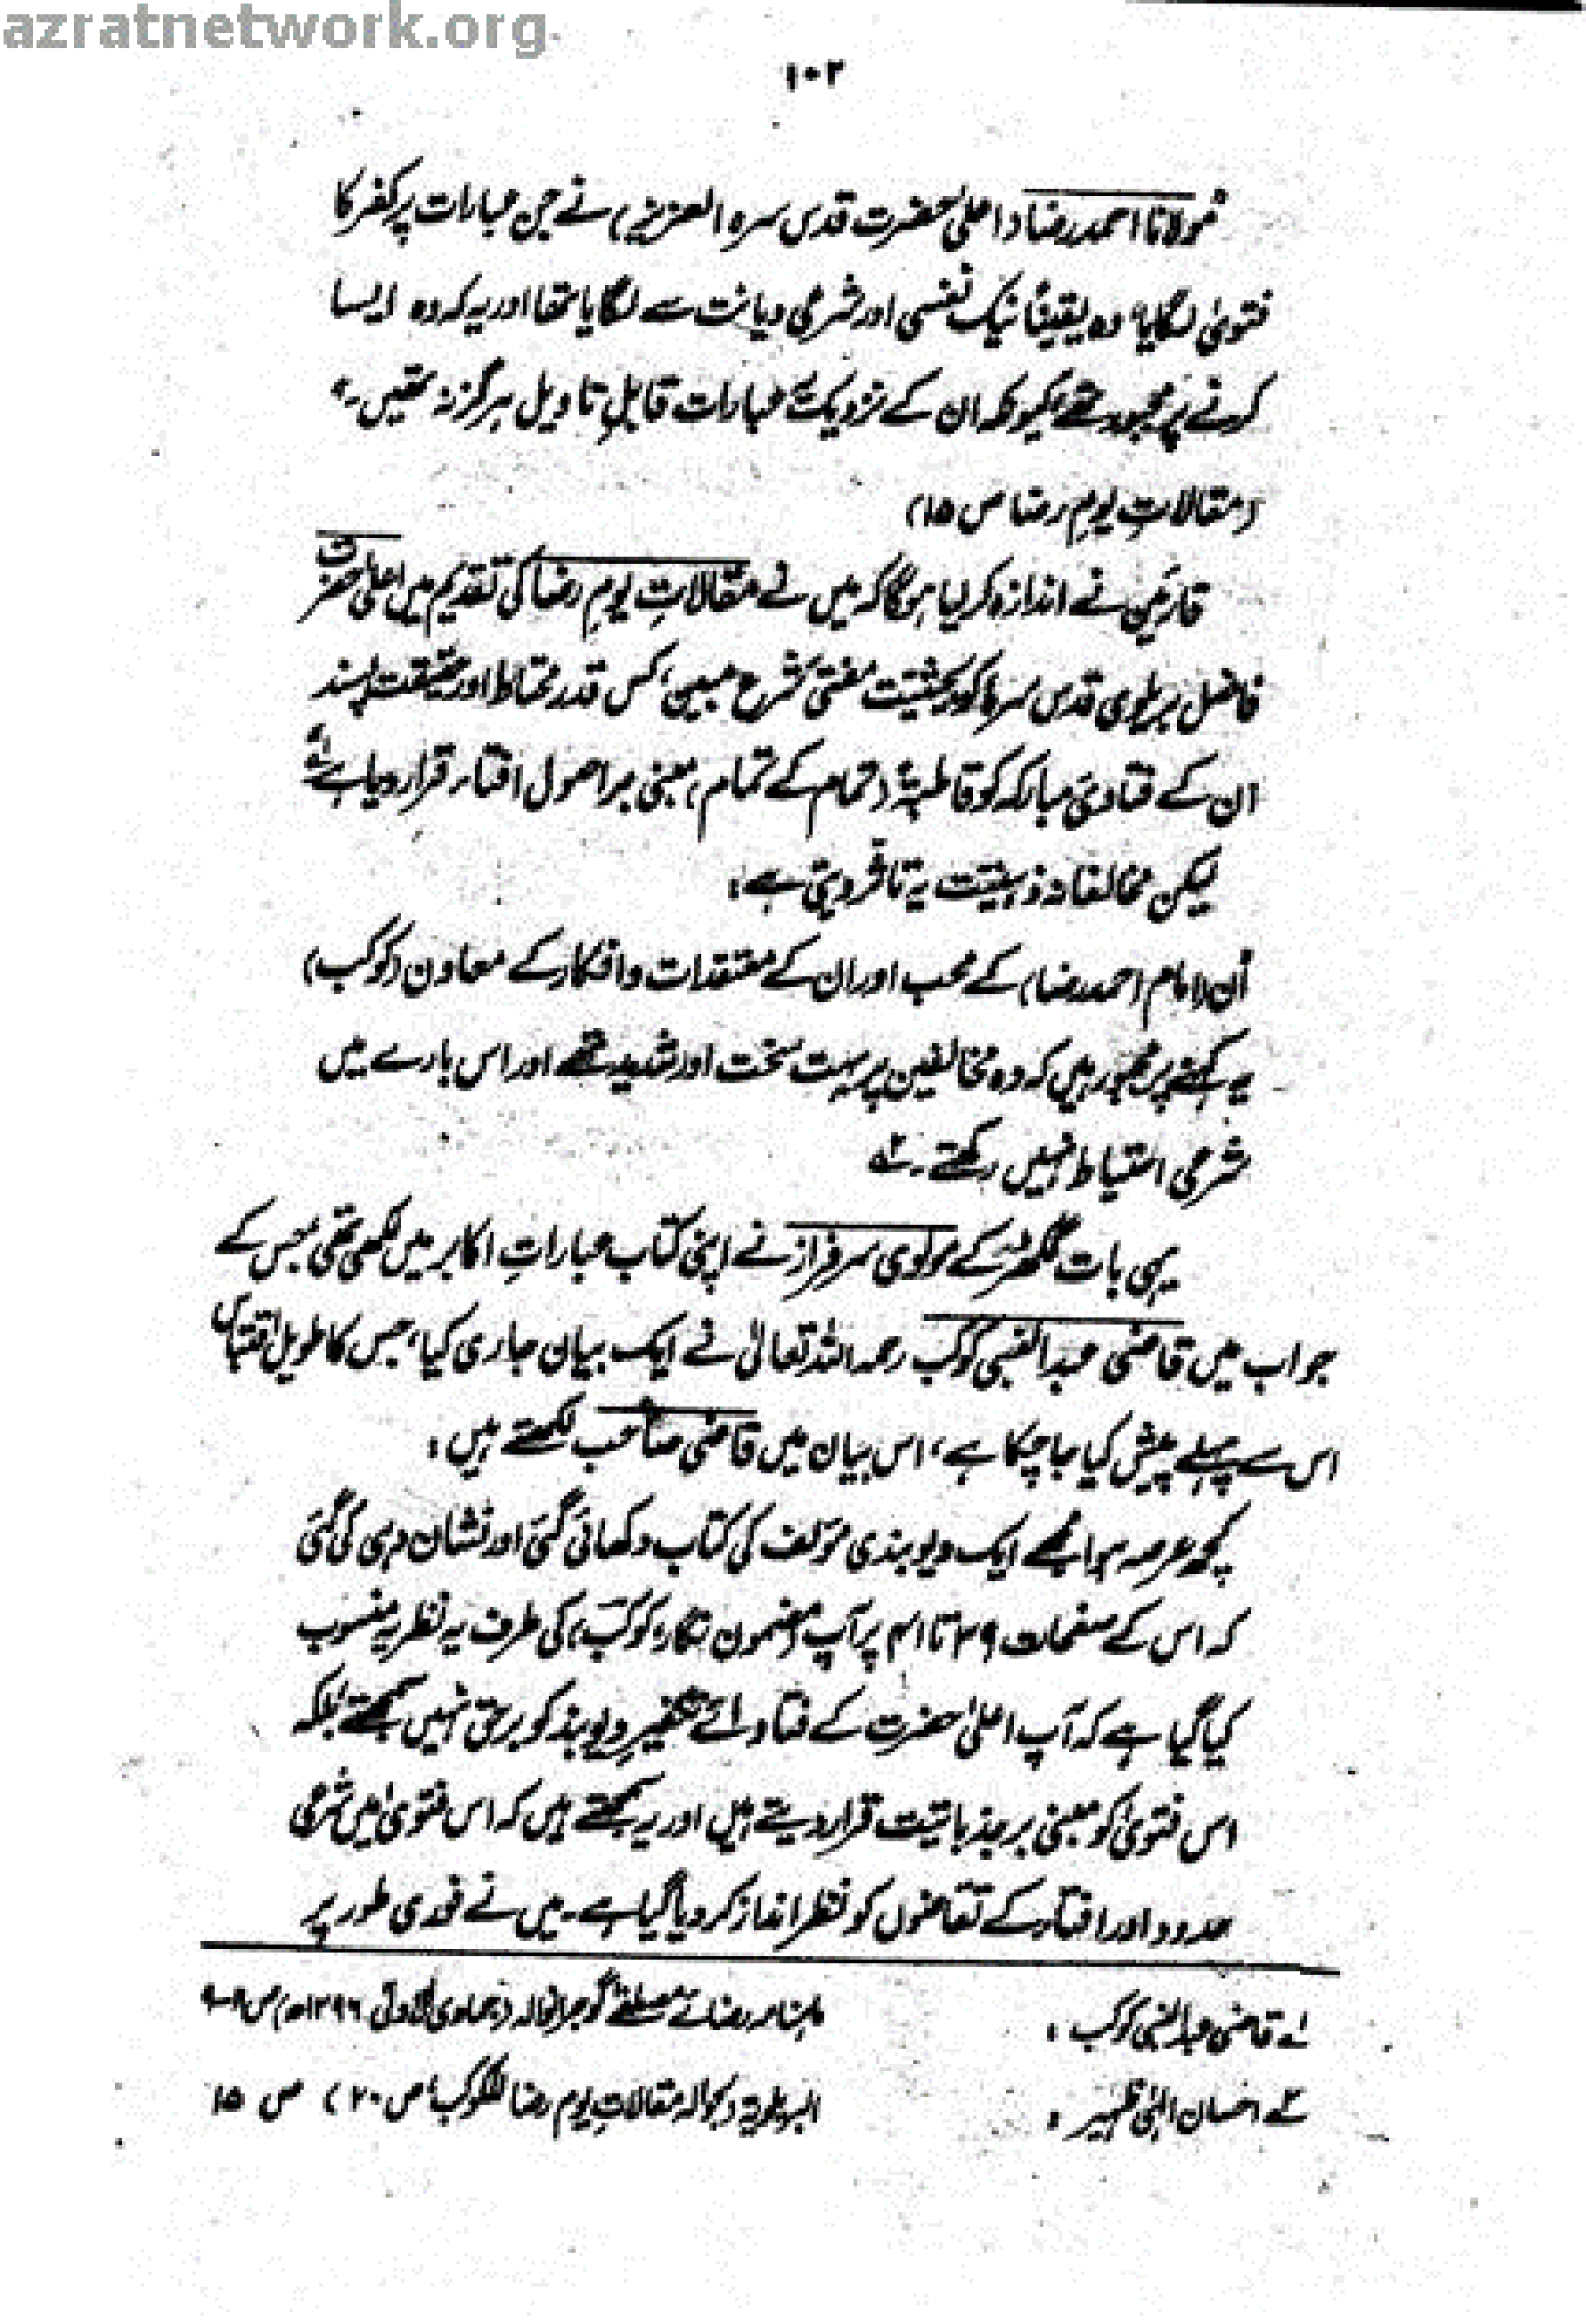 azratnetwork.org
۱۰۲
"مولانا احمد رضا (اعلیٰحضرت قدس سرہ العزیز) نے جن عبارات پر کفر کا
فتویٰ لگایا، وہ یقیناً نیک نفسی اور شرعی دیانت سے لگایا تھا اور یہ کہ وہ ایسا
کرنے پر مجبور تھے کیونکہ ان کے نزدیک یہ عبارات قابلِ تاویل ہرگز نہ تھیں۔"
(مقالاتِ یومِ رضا ص ۱۵)
قارئین نے اندازہ کر لیا ہوگا کہ میں نے مقالاتِ یومِ رضا کی تقدیم میں اعلیٰ حضرت
فاضل بریلوی قدس سرہ کو بحیثیت مفتیٔ شرع مبین، کس قدر محتاط اور حقیقت پسند
ان کے فتاویٰ مبارکہ کو قاطبۃً (تمام کے تمام) مبنی بر اصول افتاء قرار دیا ہے ۱ے
لیکن مخالفانہ ذہنیت یہ تاثر دیتی ہے:
اُن (امام احمد رضا) کے محب اور ان کے معتقدات و افکار کے معاون (کوکب)
یہ کہنے پر مجبور ہیں کہ وہ مخالفین پر بہت سخت اور شدید تھے اور اس بارے میں
شرعی احتیاط نہیں رکھتے۔ ۲ے
یہی بات گکھڑ کے مولوی سرفراز نے اپنی کتاب عباراتِ اکابر میں لکھی تھی جس کے
جواب میں قاضی عبدالنبی کوکب رحمہ اللہ تعالیٰ نے ایک بیان جاری کیا، جس کا طویل اقتباس
اس سے پہلے پیش کیا جا چکا ہے، اس بیان میں قاضی صاحب لکھتے ہیں:
کچھ عرصہ ہوا مجھے ایک دیوبندی مؤلف کی کتاب دکھائی گئی اور نشان دہی کی گئی
کہ اس کے صفحات ۳۹ تا ۴۱ پر آپ (مضمون نگار، کوکب) کی طرف یہ نظریہ منسوب
کیا گیا ہے کہ آپ اعلیٰ حضرت کے فتاوائے تکفیرِ دیوبند کو برحق نہیں سمجھتے بلکہ
اس فتویٰ کو مبنی بر جذباتیت قرار دیتے ہیں اور یہ سمجھتے ہیں کہ اس فتویٰ میں شرعی
حدود اور افتاء کے تقاضوں کو نظر انداز کر دیا گیا ہے۔ میں نے فوری طور پر
۱ے قاضی عبدالنبی کوکب : ماہنامہ رضائے مصطفےٰ گوجرانوالہ (جمادی الاولیٰ ۱۳۹۶ھ) ص ۸-۹
۲ے احسان الٰہی ظہیر : البریلویۃ (بحوالہ مقالاتِ یوم رضا للکوکب ص ۲۰) ص ۱۵